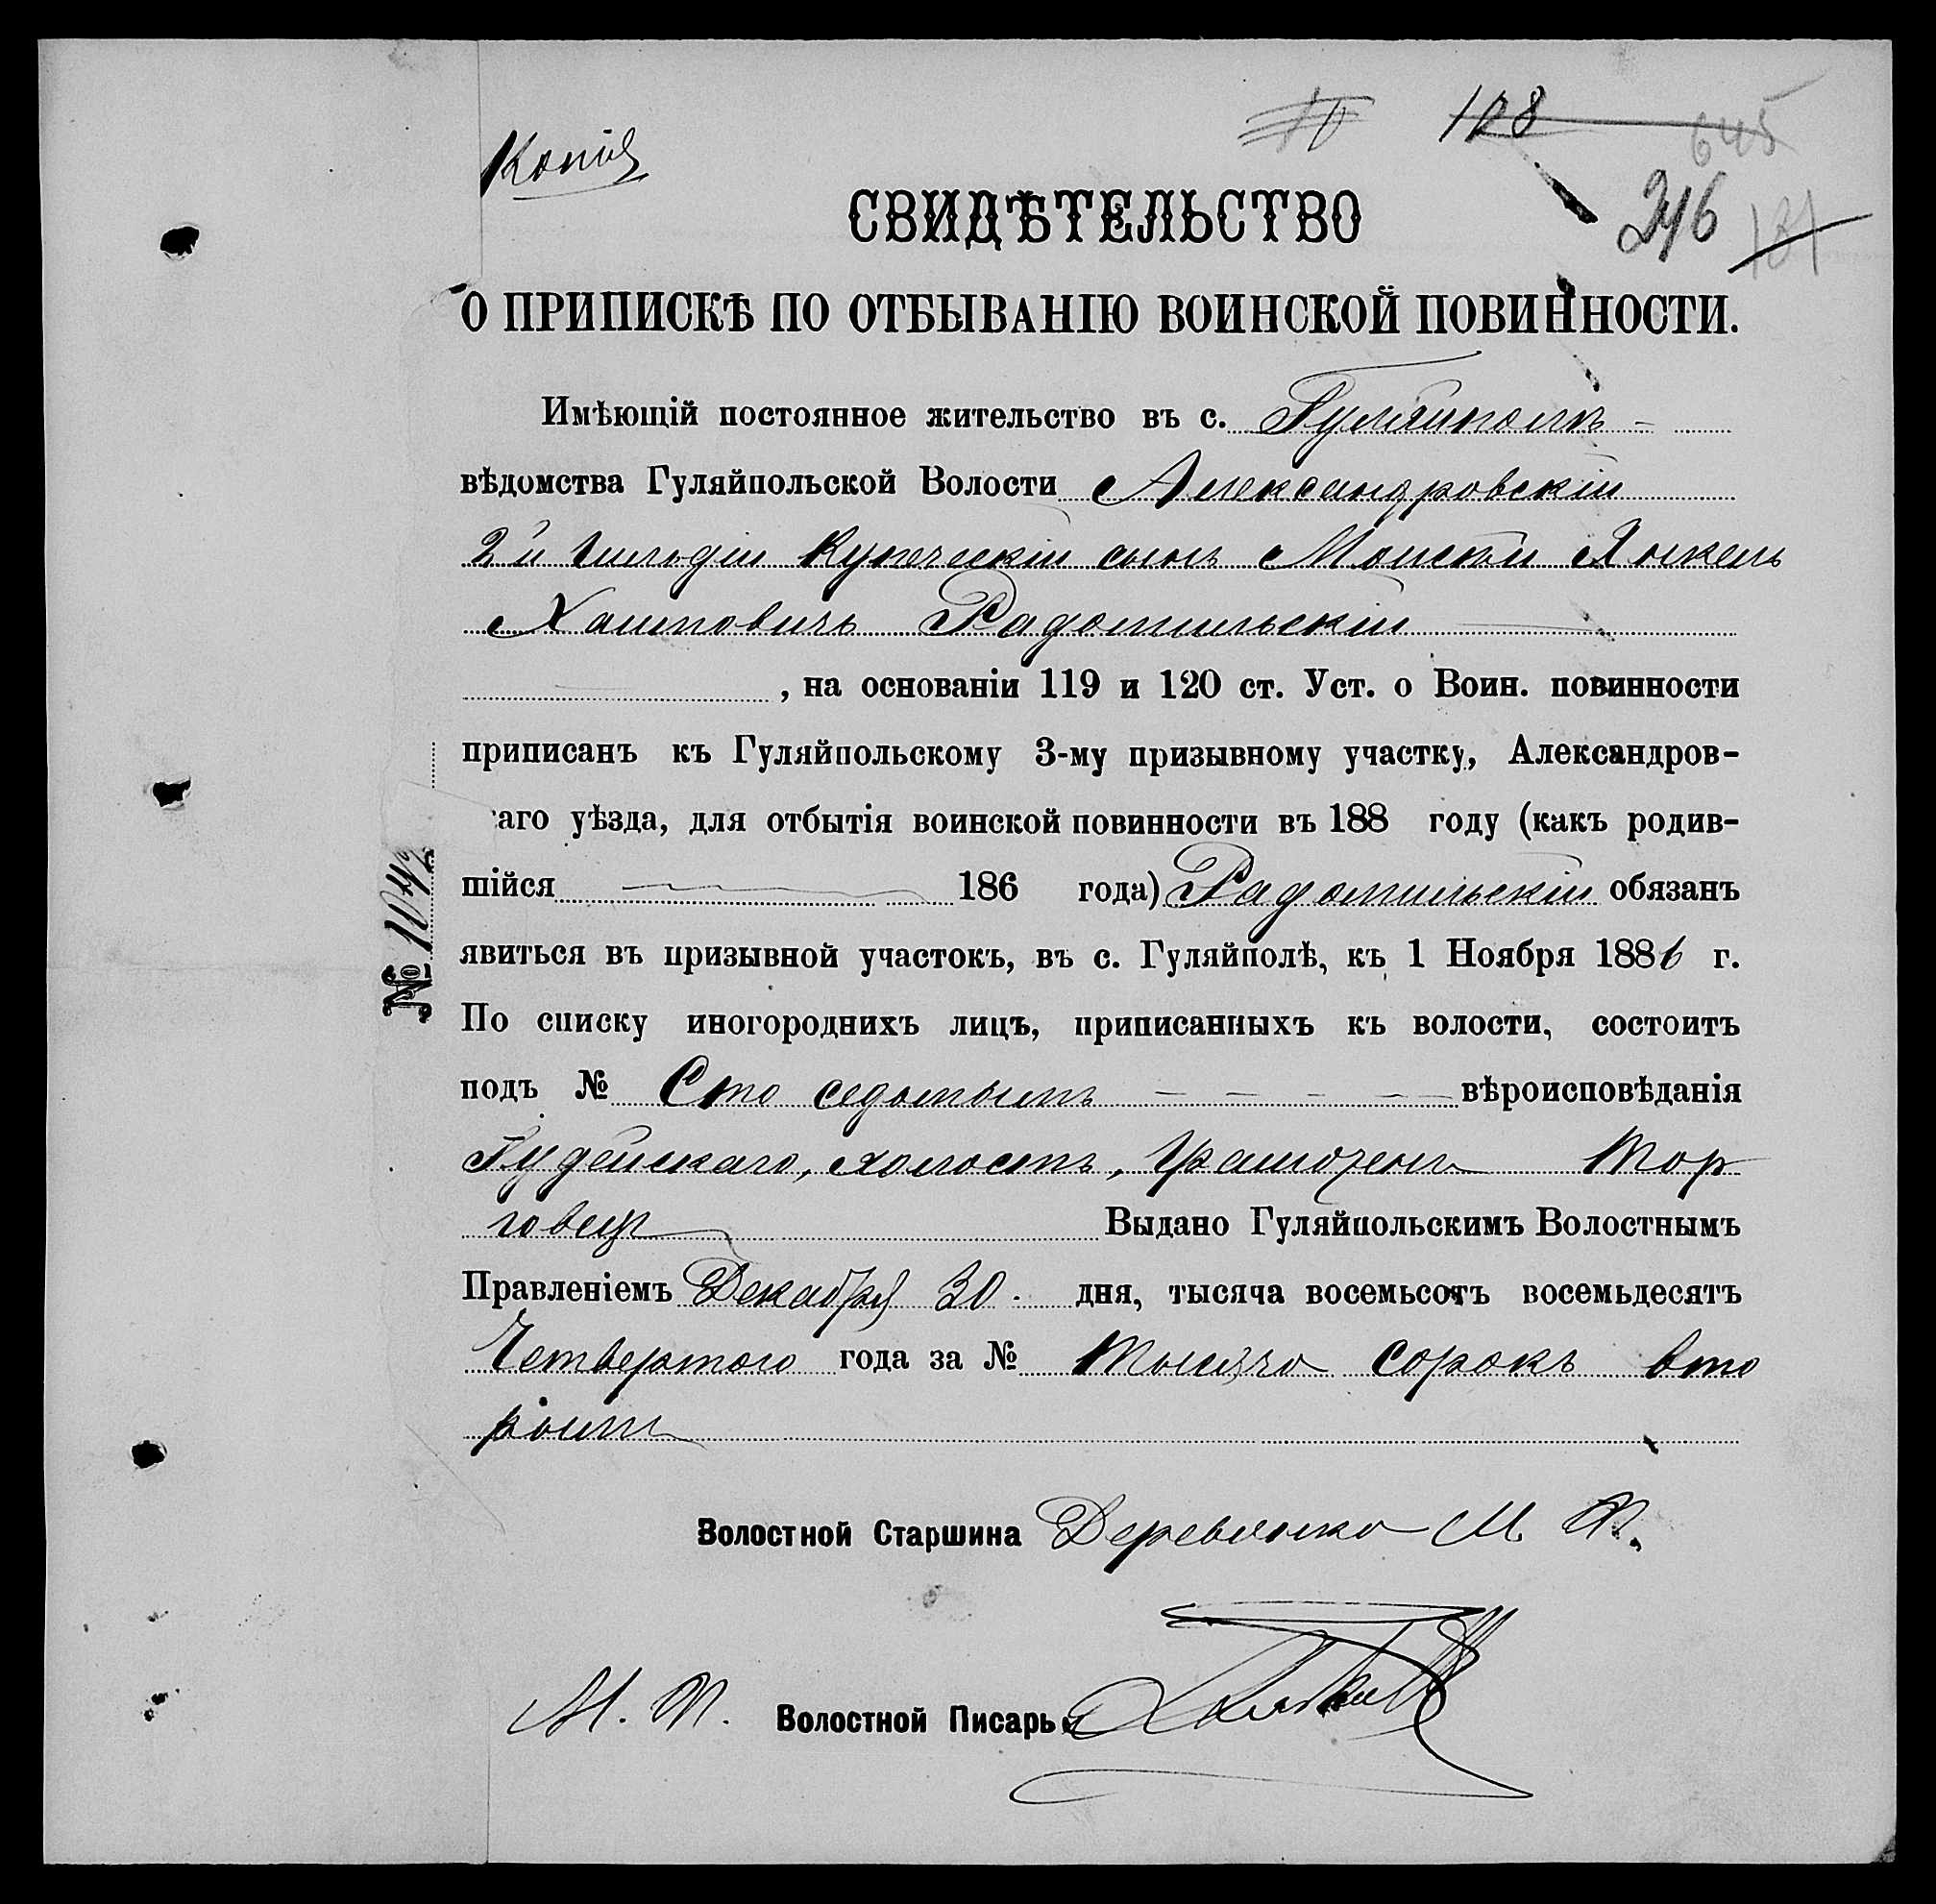 Копія
128
645
246
131
СВИДѢТЕЛЬСТВО
О ПРИПИСКѢ ПО ОТБЫВАНІЮ ВОИНСКОЙ ПОВИННОСТИ.
Имѣющій постоянное жительство въ с. Гуляйполѣ -
вѣдомства Гуляйпольской Волости Александровскій
2й Гильдіи Купеческій сынъ Янкель
Радомильскій
, на основаніи 119 и 120 ст. Уст. о Воин. повинности
приписанъ къ Гуляйпольскому 3-му призывному участку, Александров-
аго уѣзда, для отбытія воинской повинности въ 188 году (какъ родив-
шійся 186 года) Радомильскій обязанъ
явиться въ призывной участокъ, въ с. Гуляйполѣ, къ 1 Ноября 1886 г.
По списку иногороднихъ лицъ, приписанныхъ къ волости, состоитъ
подъ № Сто седьмымъ - - - - вѣроисповѣданія
Іудейскаго, холостъ, Грамотенъ Тор
говецъ Выдано Гуляйпольскимъ Волостнымъ
Правленіемъ Декабря 30. дня, тысяча восемьсотъ восемьдесятъ
Четвертого года за № Тысяча сорокъ вто
рымъ
№ 1042
Волостной Старшина Деревянко М. П.
М. П. Волостной Писарь